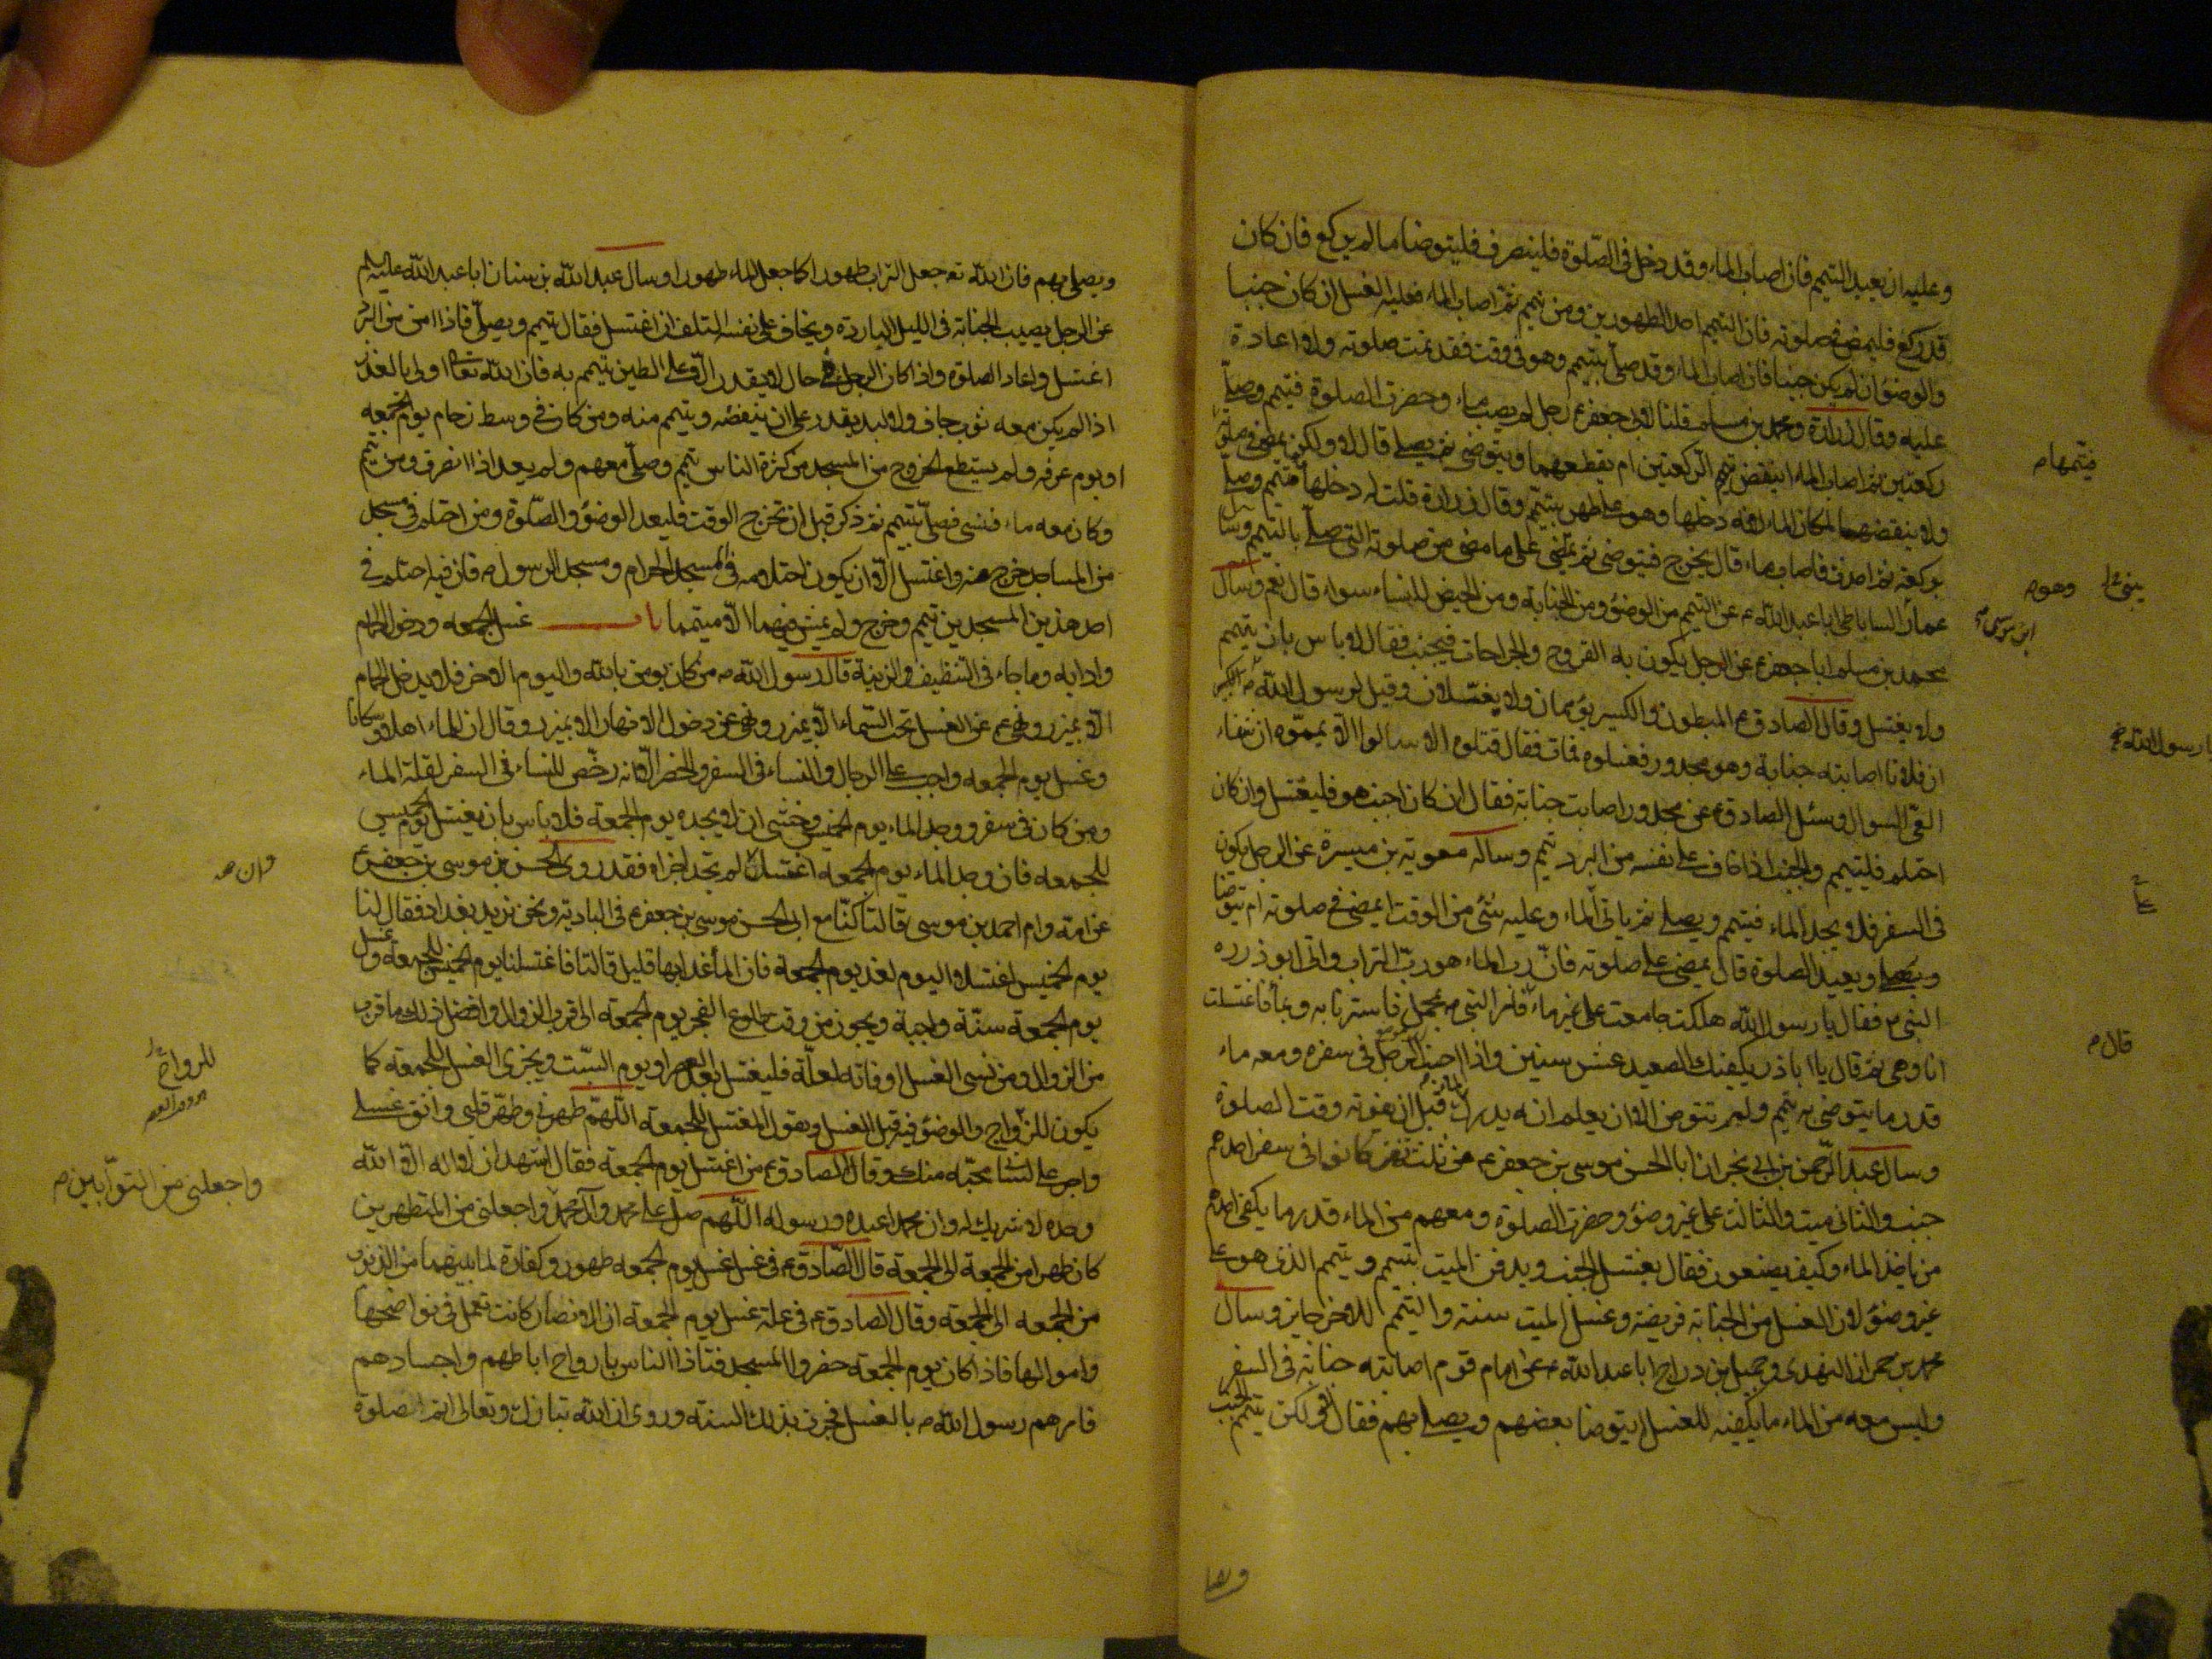 وعليه ان يعيد التيمم فان اصاب الماء وقد دخل في الصلوة فلينصرف فليتوضا ما لم يركع فان كان
قد ركع فليمض في صلوته فان التيمم احد الطهورين ومن تيمم ثم اصاب الماء فعليه الغسل ان كان جنبا
والوضوء ان لم يكن جنبا فان اصاب الماء وقد صلى بتيمم وهو في وقت فقد تمت صلوته ولا اعادة
عليه وقال زرارة ومحمد بن مسلم قلنا لابي جعفر ع رجل لم يصب ماء وحضرت الصلوة فتيمم وصلى
ركعتين ثم اصاب الماء اينقض الركعتين ام يقطعهما ويتوضى ثم يصلي قال لا ولكنه يمضي في صلوته
ولا ينقضهما لمكان الماء لانه دخلها وهو على طهر بتيمم وقال زرارة قلت له دخلها متيمم وصلى
بركعة ثم احدث فاصاب ماء قال يخرج فيتوضى ثم يبني على ما مضى من صلوته التي صلى بالتيمم وسأل
عمار الساباطي ابا عبد الله ع عن التيمم من الوضوء ومن الجنابة ومن الحيض للنساء سواء قال نعم وسأل
محمد بن مسلم ابا جعفر ع عن الرجل يكون به القروح والجراحات فيجنب فقال لا باس بان يتيمم
ولا يغتسل وقال الصادق ع المبطون والكسير يؤممان ولا يغتسلان وقيل لرسول الله ص
ان فلانا اصابته جنابة وهو مجدور فغسلوه فمات فقال قتلوه الا سالوا الا يمموه ان شفاء
العي السوال وسئل الصادق ع عن مجدور اصابته جنابة فقال ان كان اجنب هو فليغتسل وان كان
احتلم فليتيمم والجنب اذا خاف على نفسه من البرد تيمم وساله معوية بن ميسرة عن الرجل يكون
في السفر فلا يجد الماء فيتيمم ويصلي ثم ياتي الماء وعليه شئ من الوقت ايمضي في صلوته ام يتوضا
ويعيد الصلوة قال يمضي على صلوته فان رب الماء هو رب التراب واتى ابوذر ره
النبي ص فقال يا رسول الله هلكت جامعت على غير ماء قال فامر النبي ص بمحمل فاستترنا به وبماء فاغتسلت
انا وهي ثم قال يا اباذر يكفيك الصعيد عشر سنين واذا اجنب الرجل في سفره ومعه ماء
قدر ما يتوضى به تيمم ولم يتوض الا ان يعلم انه يدرك الماء قبل ان يفوته وقت الصلوة
وسال عبد الرحمن بن ابي نجران ابا الحسن موسى بن جعفر ع عن ثلثة نفر كانوا في سفر احدهم
جنب والثاني ميت والثالث على غير وضوء وحضرت الصلوة ومعهم من الماء قدر ما يكفي احدهم
من ياخذ الماء وكيف يصنعون فقال يغتسل الجنب ويدفن الميت بتيمم ويتيمم الذي هو على
غير وضوء لان الغسل من الجنابة فريضة وغسل الميت سنة والتيمم للاخر جايز وسال
محمد بن حمران النهدي وجميل بن دراج ابا عبد الله ع عن امام قوم اصابته جنابة في السفر
وليس معه من الماء ما يكفيه للغسل ايتوضا بعضهم ويصلي بهم فقال لا ولكن يتيمم الجنب
متيممها م
يبني على
وهو م
ابن موسى
يا رسول الله
قال م
ويصلي بهم فان الله تع جعل التراب طهورا كما جعل الماء طهورا وسال عبد الله بن سنان ابا عبد الله عليه السلم
عن الرجل يصيب الجنابة في الليل الباردة ويخاف على نفسه التلف ان اغتسل فقال يتيمم ويصلي فاذا امن من البرد
اغتسل واعاد الصلوة واذا كان الرجل في حال لا يقدر الا على الطين يتيمم به فان الله تعالى اولى بالعذر
اذا لم يكن معه ثوب جاف ولا لبد يقدر على ان ينفضه ويتيمم منه ومن كان في وسط زحام يوم الجمعه
او يوم عرفه ولم يستطع الخروج من المسجد من كثرة الناس تيمم وصلى معهم ولم يعد اذا انصرف ومن تيمم
وكان معه ماء فنسى فصلى بتيمم ثم ذكر قبل ان تخرج الوقت فليعد الوضوء والصلوة ومن احتلم في مسجد
من المساجد خرج منه واغتسل الا ان يكون احتلامه في المسجد الحرام ومسجد الرسول ص فان فيه احتلم في
احد هذين المسجدين تيمم وخرج ولم يمش فيهما الا متيمما باب غسل الجمعه ودخول الحمام
وادابه وما جاء في التنظيف والزينة قال رسول الله ص من كان يومن بالله واليوم الاخر فلا يدخل الحمام
الا بميزر ونهى ع عن الغسل تحت السماء الا بميزر ونهى عن دخول الانهار الا بميزر وقال ان للماء اهلا وسكانا
وغسل يوم الجمعه واجب على الرجال والنساء في السفر والحضر الا انه رخص للنساء في السفر لقلة الماء
ومن كان في سفر ووجد الماء يوم الخميس وخشى ان لا يجده يوم الجمعة فلا باس بان يغتسل يوم الخميس
للجمعه فان وجد الماء يوم الجمعه اغتسل وان لم يجد اجزاه فقد روى الحسن بن موسى بن جعفر ع
عن امه وام احمد بن موسى قالتا كنا مع ابي الحسن موسى بن جعفر ع في البادية ونحن نريد بغداد فقال لنا
يوم الخميس اغتسلا اليوم لغد يوم الجمعة فان الماء غدا بها قليل قالتا فاغتسلنا يوم الخميس للجمعه وغسل
يوم الجمعة سنة واجبة ويجوز من وقت طلوع الفجر يوم الجمعة الى قرب الزوال وافضل ذلك ما قرب
من الزوال ومن نسى الغسل او فاته لعلة فليغتسل بعد العصر او يوم السبت ويجزي الغسل للجمعة كما
يكون للزواج والوضوء فيه قبل الغسل ويقول المغتسل للجمعة اللهم طهرني وطهر قلبي وانق غسلي
واجر على لساني محبة منك وقال الصادق ع من اغتسل يوم الجمعة فقال اشهد ان لا اله الا الله
وحده لا شريك له وان محمدا عبده ورسوله اللهم صل على محمد وآل محمد واجعلني من المتطهرين
كان طهرا من الجمعة الى الجمعة قال الصادق ع في غسل يوم الجمعه طهور وكفارة لما بينهما من الذنوب
من الجمعه الى الجمعة وقال الصادق ع في علة غسل يوم الجمعة ان الانصار كانت تعمل في نواضحها
واموالها فاذا كان يوم الجمعة حضروا المسجد فتاذا الناس بارواح اباطهم واجسادهم
فامرهم رسول الله ص بالغسل فجرت بذلك السنة وروى ان الله تبارك وتعالى اتم الصلوة
وان
للرواح
واجعلني من التوابين م